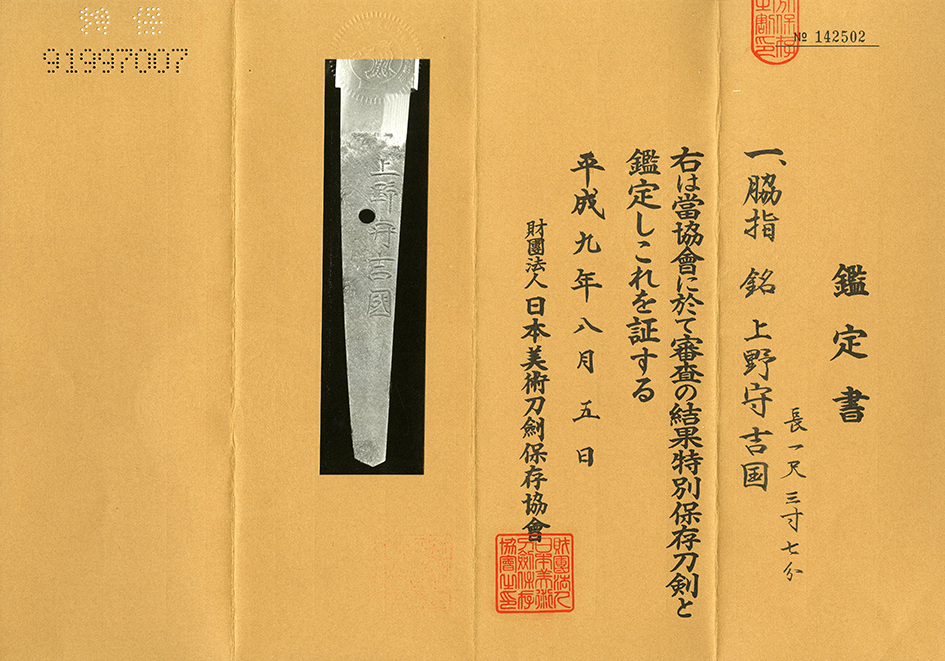 № 142502
鑑定書
一、脇指 銘 上野守吉国
長一尺三寸七分
右は當協會に於て審査の結果特別保存刀劍と
鑑定しこれを証する
平成九年八月五日
財團法人 日本美術刀劍保存協會
財團法人
日本美術
刀劍保存
協會之印
上野守吉國
特保
91997007